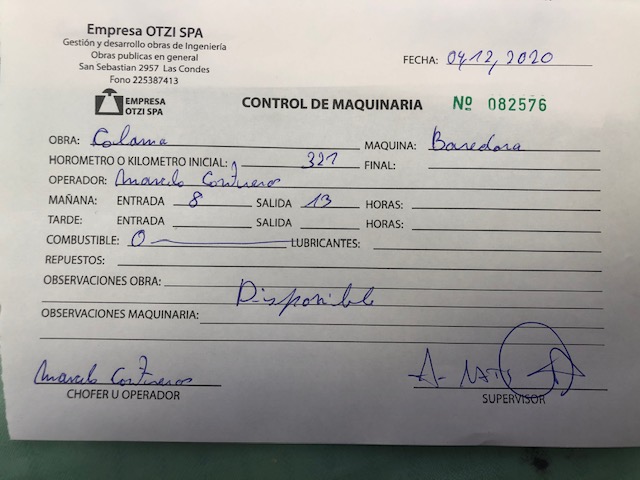 Empresa OTZI SPA
Gestión y desarrollo obras de Ingeniería
Obras publicas en general
San Sebastian 2957 Las Condes
Fono 225387413
FECHA: 04/12, 2020
EMPRESA
OTZI SPA
CONTROL DE MAQUINARIA Nº 082576
OBRA: Calama MAQUINA: Baredora
HOROMETRO O KILOMETRO INICIAL: 327 FINAL:
OPERADOR:
MAÑANA: ENTRADA 8 SALIDA 13 HORAS:
TARDE: ENTRADA SALIDA HORAS:
COMBUSTIBLE: 0 LUBRICANTES:
REPUESTOS:
OBSERVACIONES OBRA: Disponible
OBSERVACIONES MAQUINARIA:
CHOFER U OPERADOR
SUPERVISOR